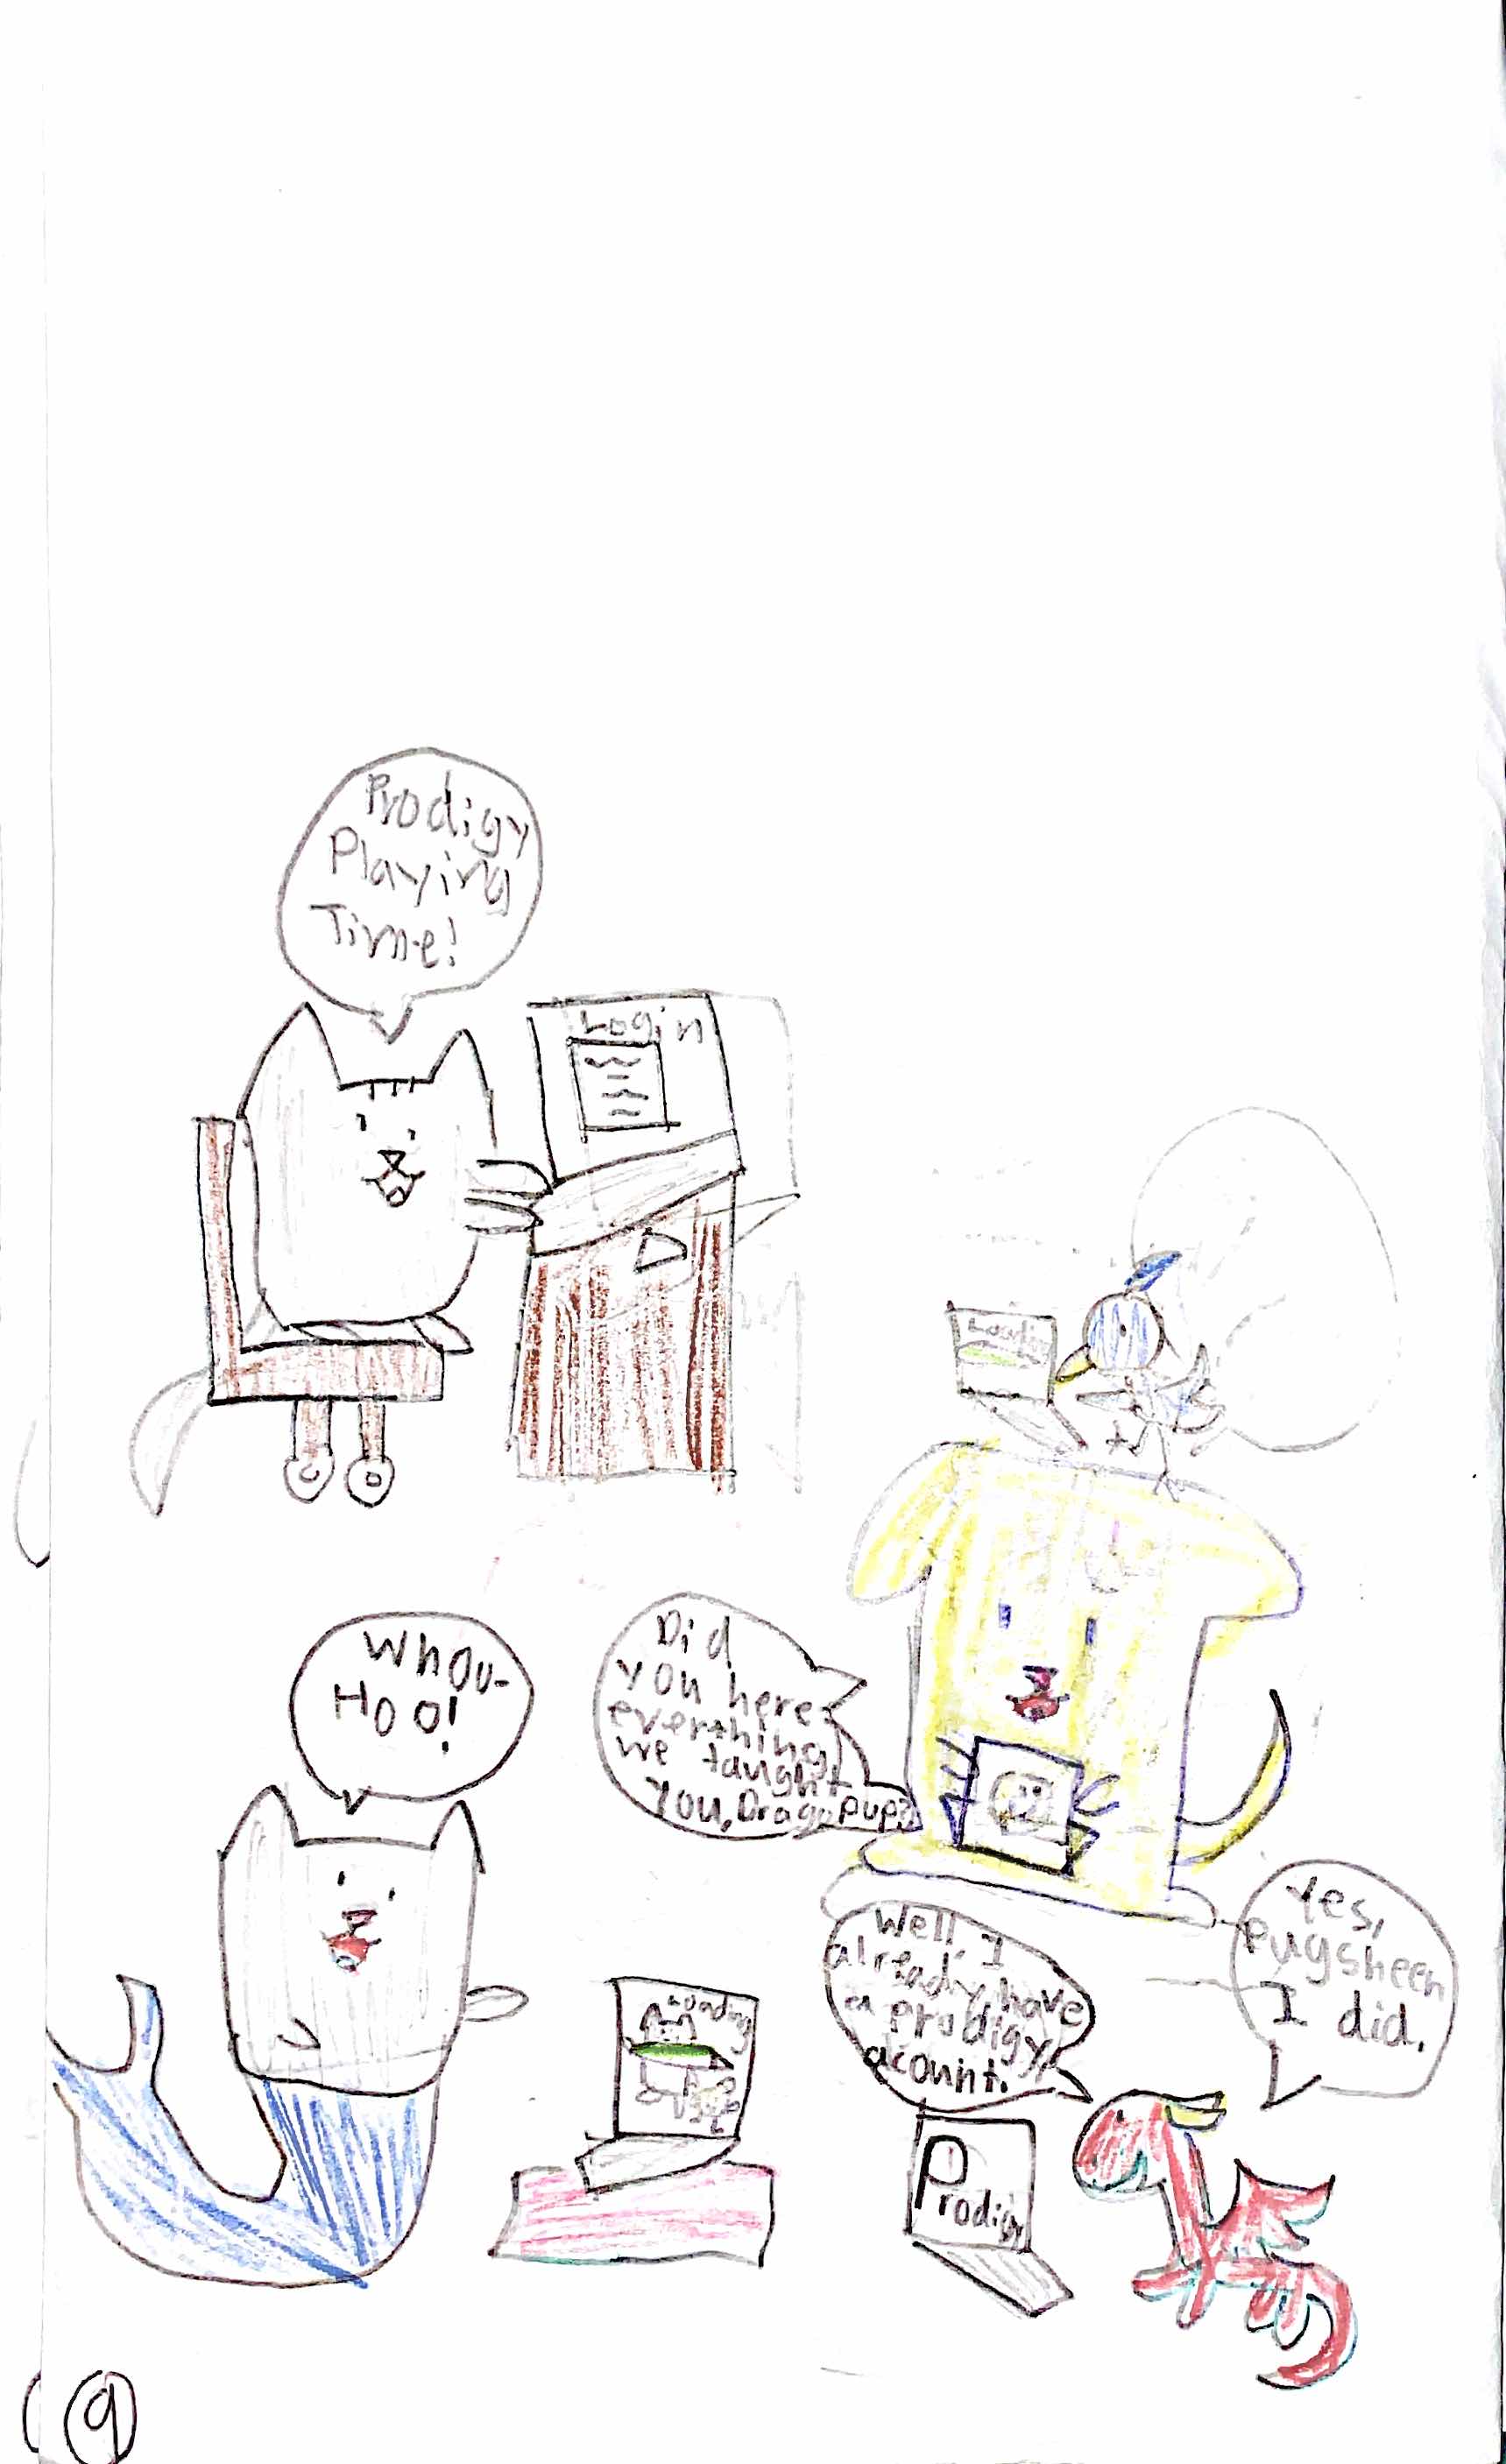 Prodigy
Playing
Time!
Login
Loading
Whou-
Hoo!
Did
you here
everthing
we taught
you, Dragopup?
Yes,
Pugsheen
I did.
Well, I
already have
a prodigy
acount.
Loading
Prodigy
9